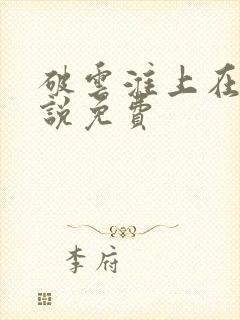 破雲淮上在
說免費
李府